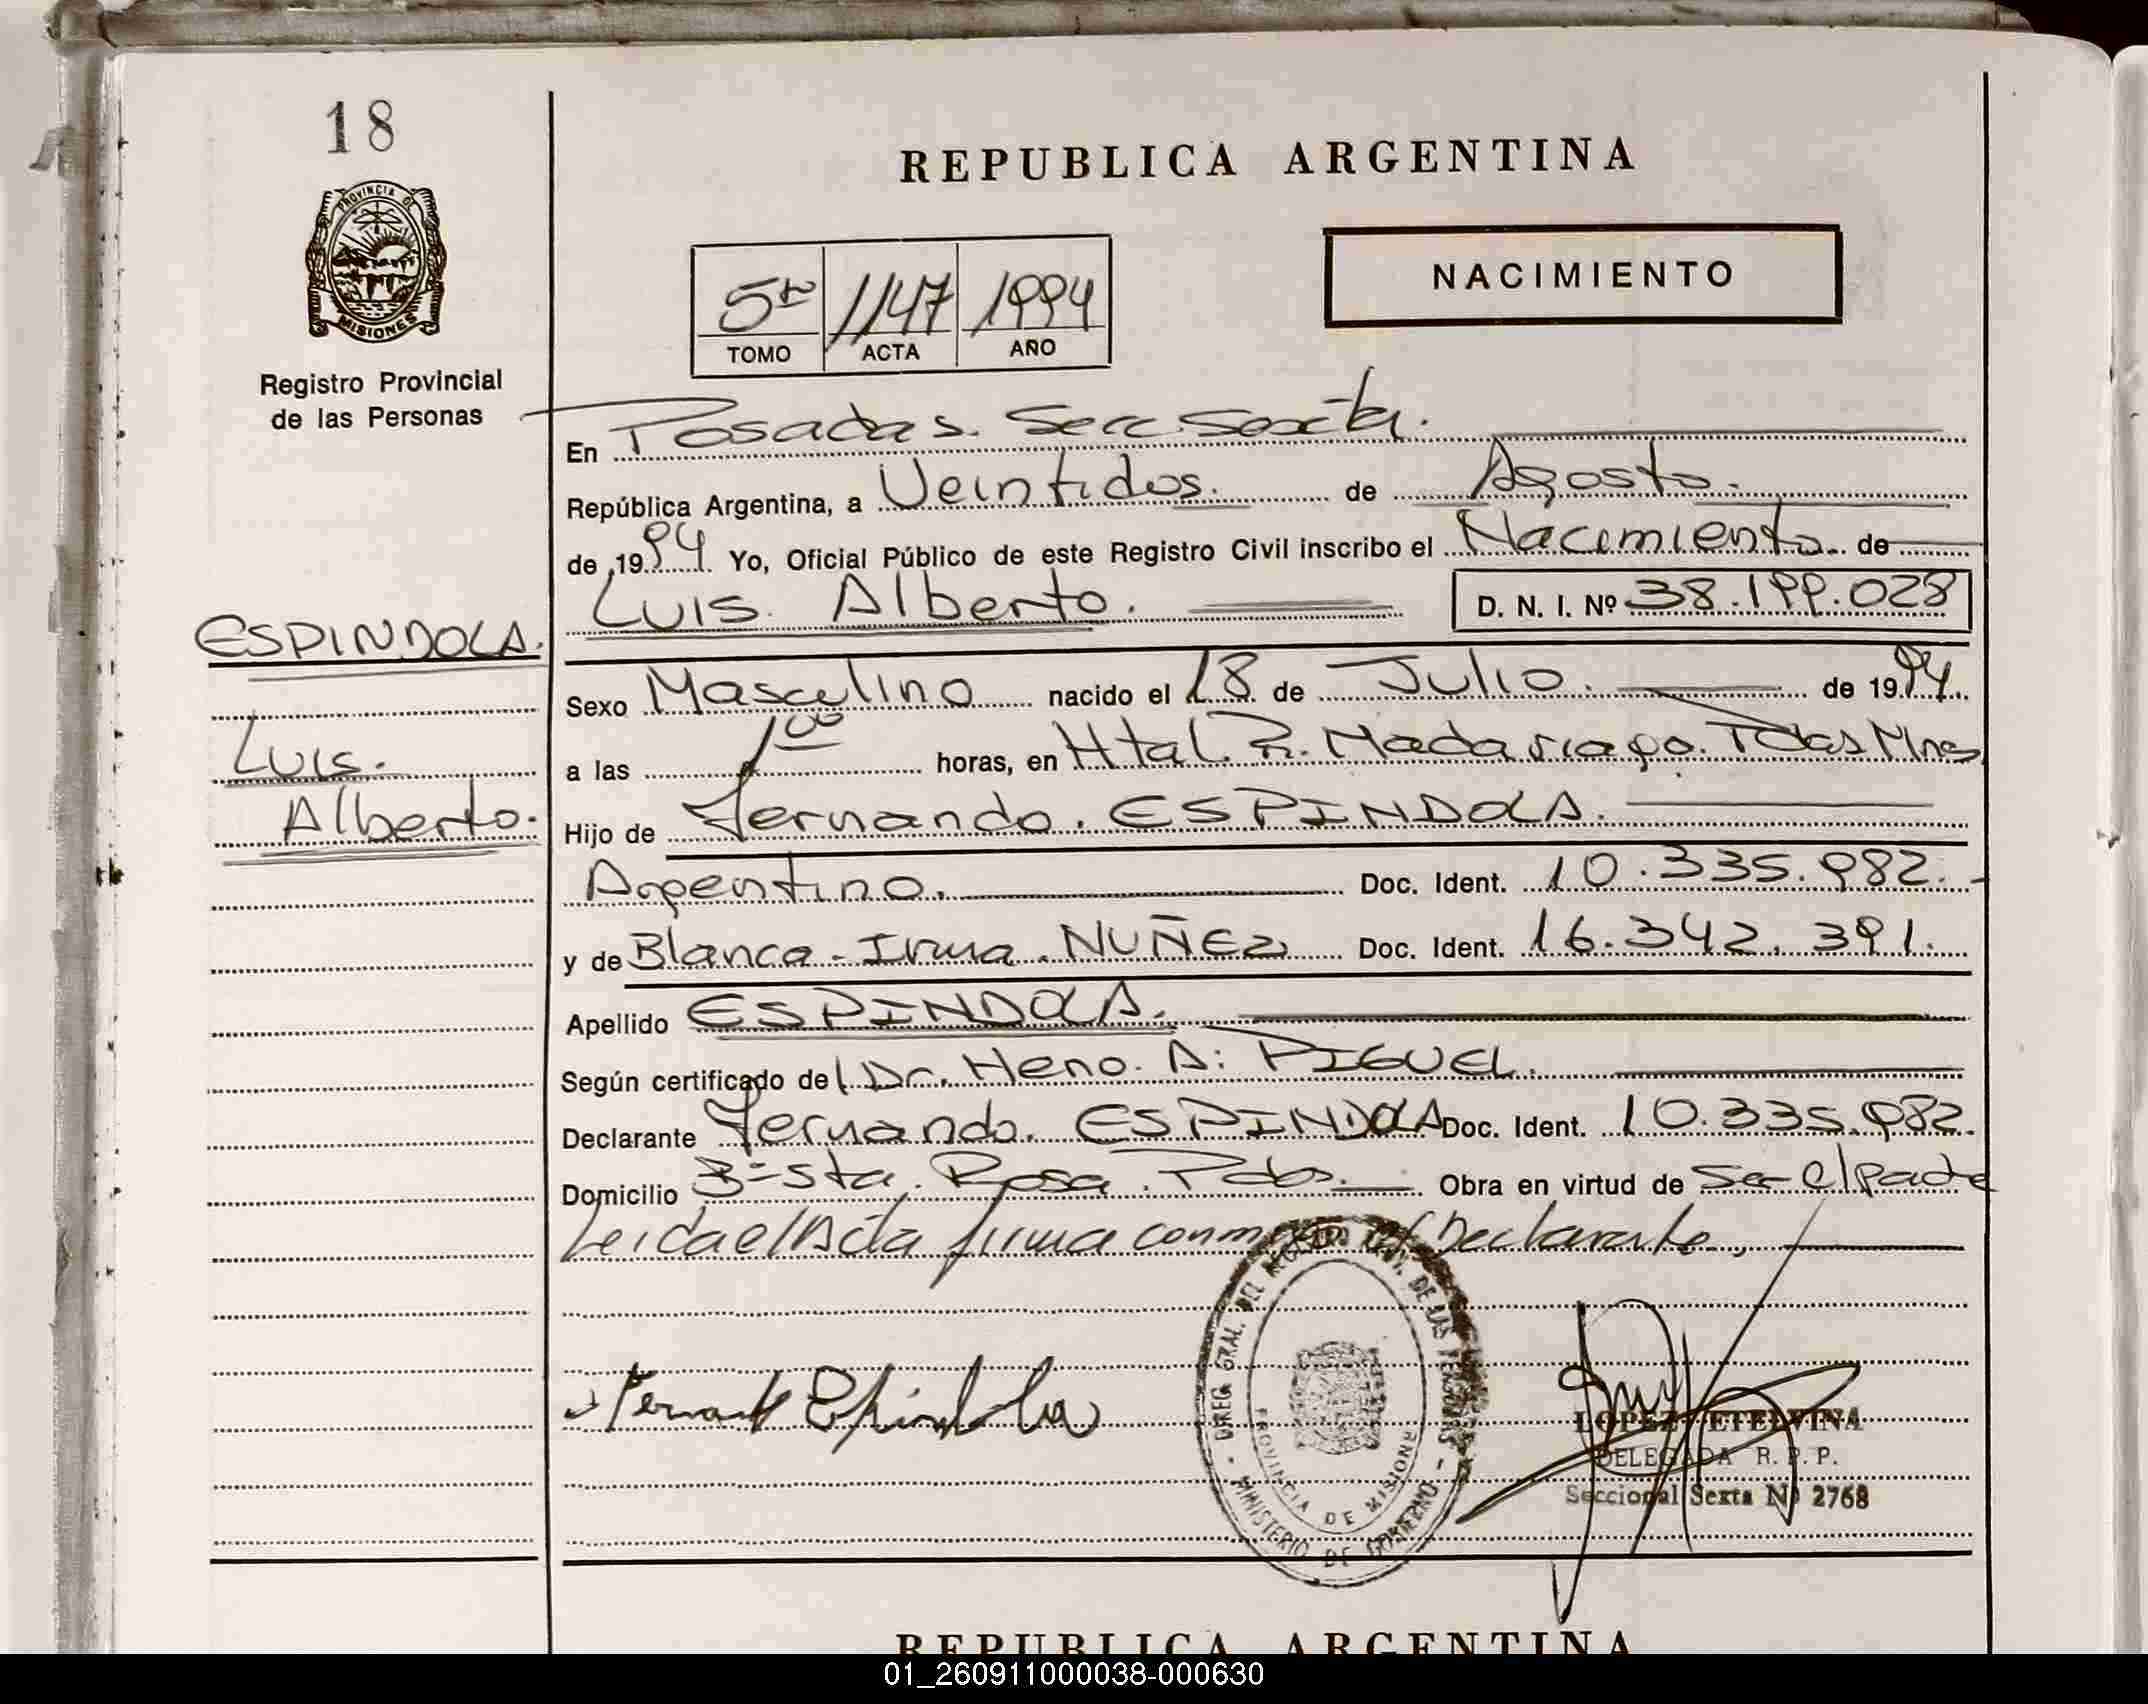 18
PROVINCIA DE
MISIONES
Registro Provincial
de las Personas
REPUBLICA ARGENTINA
NACIMIENTO
5to 1147 1994
TOMO ACTA AÑO
En Posadas. Secc. Sexta.
República Argentina, a Veintidos. de Agosto.
de 1994 Yo, Oficial Público de este Registro Civil inscribo el Nacimiento de
Luis. Alberto. D. N. I. Nº 38.199.028
ESPINDOLA.
Luis.
Alberto.
Sexo Masculino nacido el 18 de Julio. de 1994.
a las 1 00 horas, en Htal. R. Madariaga. Pdas Mnes
Hijo de Fernando. ESPINDOLA.
Argentino. Doc. Ident. 10.335.982.-
y de Blanca-Irma. NUÑEZ Doc. Ident. 16.342.391.
Apellido ESPINDOLA.
Según certificado del Dr. Heno. A: PIGUEL.
Declarante Fernando. ESPINDOLA Doc. Ident. 10.335.982.
Domicilio Bº Sta. Rosa. Pdas. Obra en virtud de Ser el padre
Leida el Acta firma conmigo el Declarante,
Fernando Espindola
DIREC. GRAL. DEL REGISTRO PROV. DE LAS PERSONAS
PROVINCIA DE MISIONES
MINISTERIO DE GOBIERNO
LOPEZ ETELVINA
DELEGADA R. P. P.
Seccional Sexta Nº 2768
REPUBLICA ARGENTINA
01_260911000038-000630